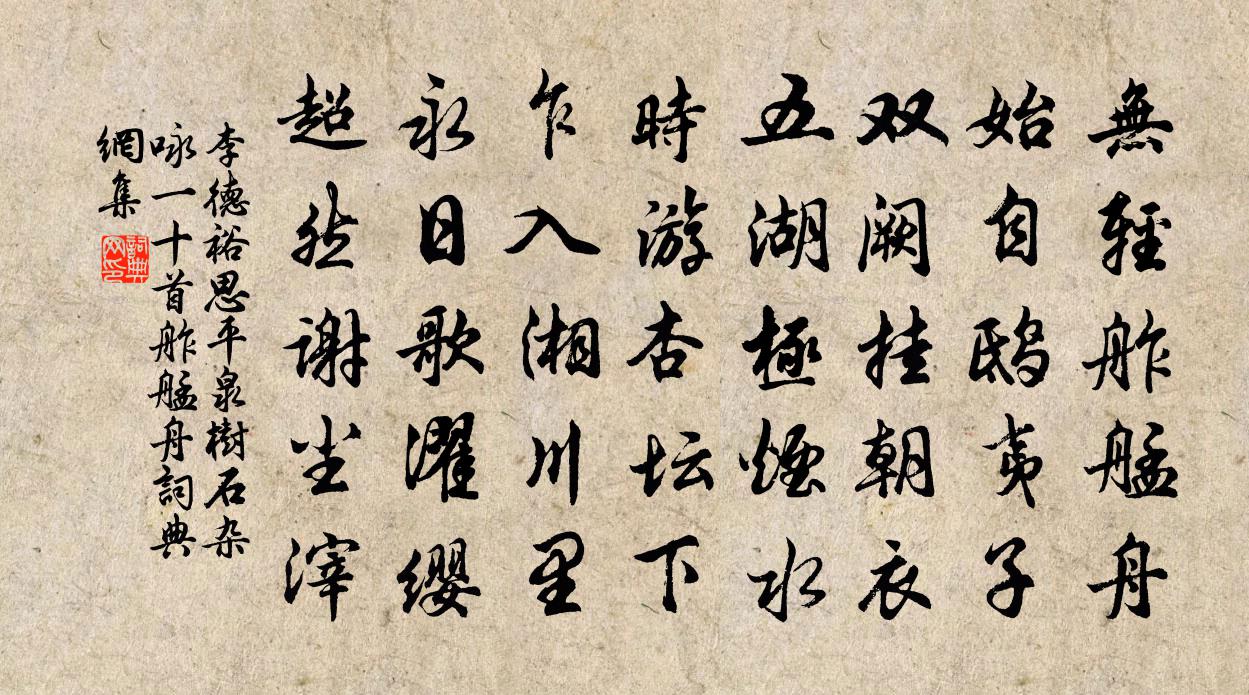 無輕舴艋舟
始自鴟夷子
双阙挂朝衣
五湖極煙水
時游杏坛下
乍入湘川里
永日歌濯缨
超然谢尘滓
李德裕思平泉樹石杂
咏一十首舴艋舟詞典
網集
詞典
网印